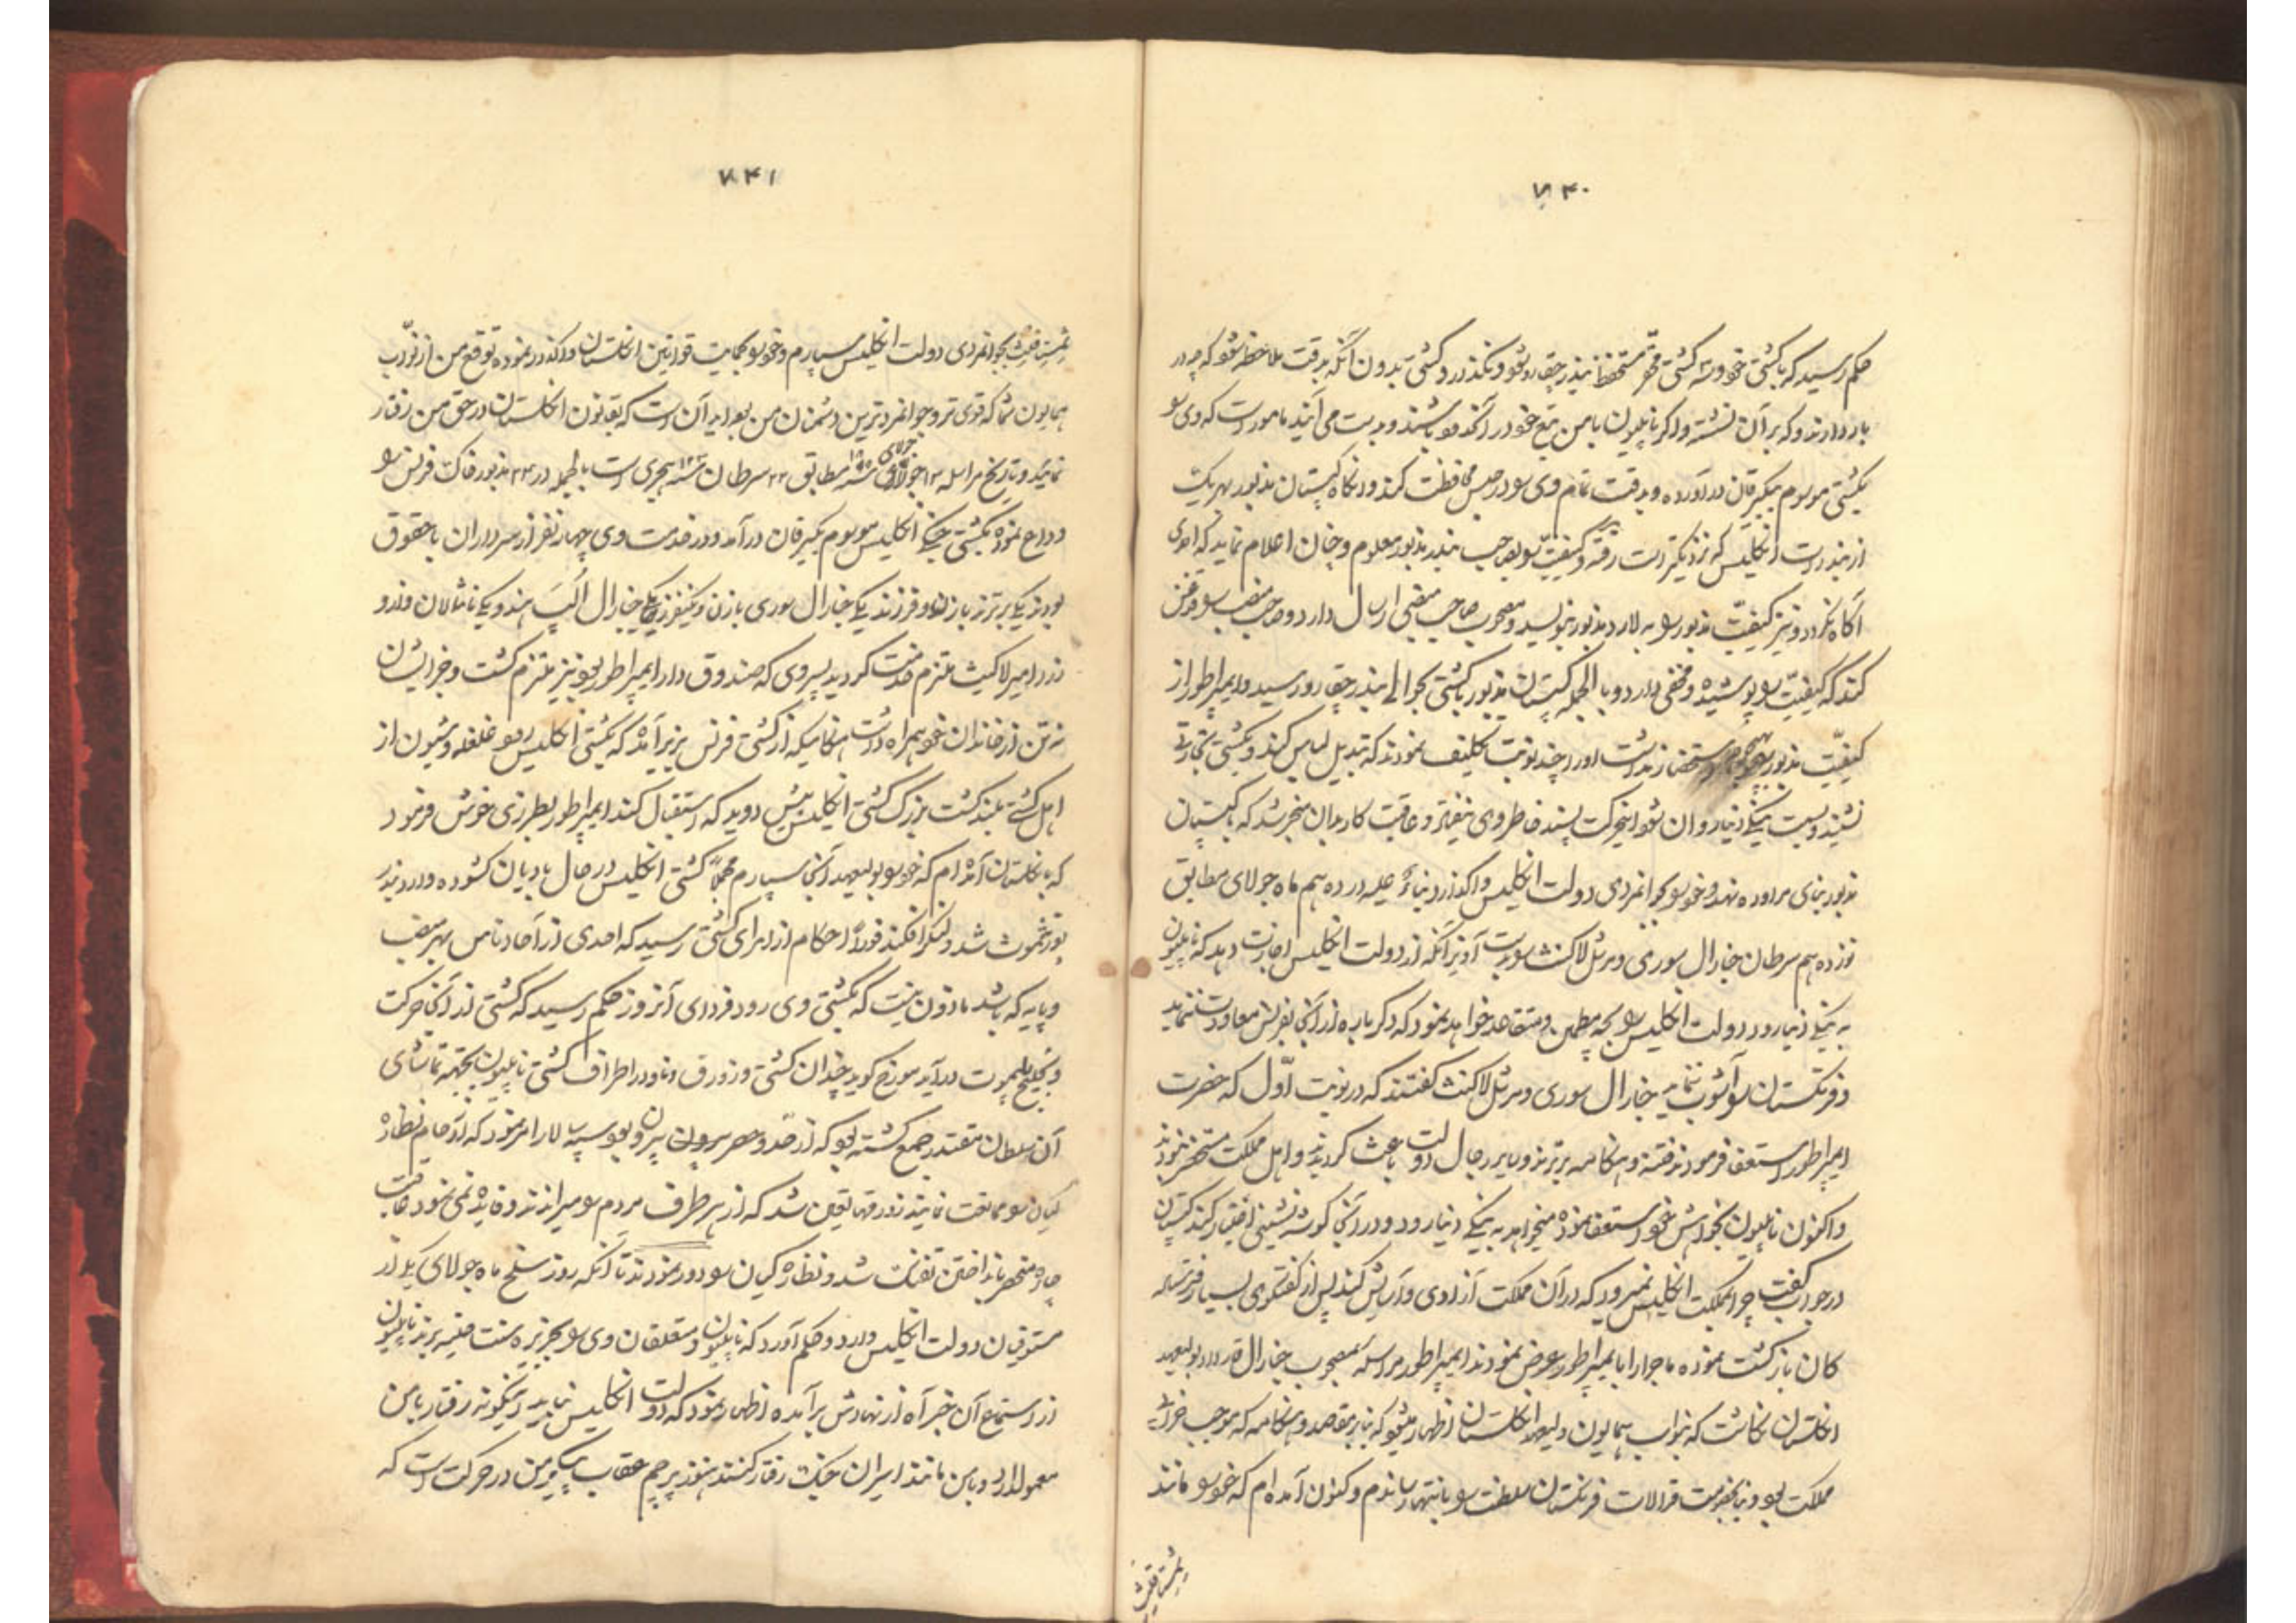 ۷۴۰
حکم رسید که با کشتی خود و سه کشتی محقر مستحفظ بندر چقارد شود و نگذارد کشتی بدون آنکه بدقت ملاحظه شود که چه در
بار دارند و که بر آن نشسته و اگر ناپلیون با من تبع خود در آنکه فو باشند و بدست می آیند مامور است که وی را
بکشتی موسوم ببلیرفان در آورده و بدقت تمام وی را در حبس محافظت کند و آنگاه کپیتان مذبور بهر یک
از بندر دست انگلیس که نزدیکتر است رفته و کیفیت را بصاحب بندر مذبور معلوم و چنان اعلام نماید که احدی
آگاه نگردد و نیز کیفیت مذبور را به لارد مذبور بنویسد و مصحوب صاحب منصبی ارسال دارد و صاحب منصب را قدغن
کند که کیفیت را پوشیده و مخفی دارد و بالجمله کپیتان مذبور با کشتی بحوالی بندر چقارد رسید و ایمپراطور از
کیفیت مذبور استحضار نداشت او را چند نوبت تکلیف نمودند که تبدیل لباس کند و بکشتی تجارتی
نشیند و بسمت ینگی دنیا روان شود اینحرکت پسند خاطر وی نیفتاد و عاقبت کار بدان منجر شد که کپیتان
مذبور بنای مراوده نهد و خود را بجوانمردی دولت انگلیس واگذارد بناء علیه در دهم ماه جولای مطابق
نوزدهم سرطان جنارال سوری و مرشل لاکنث را بدست آویز آنکه از دولت انگلیس اجازت دهد که ناپلیون
به ینگی دنیا رود دولت انگلیس را بجه مطمئن و متقاعد خواهد نمود که دگر باره از آنجا بفرنس معاودت ننماید
و فرنگستان را آشوب ننماید جنارال سوری و مرشل لاکنث گفتند که در نوبت اوّل که حضرت
ایمپراطور استعفا فرمودند فتنه و هنگامه برترند و سایر رجال دولت باعث گردیدند و اهل مملکت مستحضر نبودند
و اکنون ناپلیون بخواهش خود استعفا نموده میخواهد به ینگی دنیا رود و در آنجا گوشه نشینی اختیار کند کپیتان
در جواب گفت چرا بمملکت انگلیس نمیرود که در آن مملکت آزادی و آسایش کند پس از گفتگوی بسیار فرستاد
کان بازگشت نموده ماجرا را بایمپراطور عرض نمودند ایمپراطور مراسله بمصحوب جنارال قدردار بولیعهد
انگلستان نگاشت که بنواب همایون ولیعهد انگلستان اظهار میشود که بنابر مقاصد و هنگامه که موجب خرابی
مملکت بود و بنا بخصومت قرالات فرنگستان سلطنت را بانتها رساندم و کنون آمده ام که خود را مانند
ثمستاقلیث
۷۴۱
ثمستاقلیث بجوانمردی دولت انگلیس سپارم و خود را بحمایت قوانین انگلستان واگذار نموده توقع من از نوّاب
همایون شما که قوی تر و جوانمردترین دشمنان من بود این است که بقانون انگلستان در حق من رفتار
نمائید و تاریخ مراسله ۱۳ جولای سنه ۱۸۱۵ مطابق ۲۲ سرطان سنه ۱۲۳ هجری است بالجمله در ۲۳ مذبور خاک فرنس را
وداع نموده بکشتی جنگی انگلیس موسوم ببلیرفان در آمد و در خدمت وی چهار نفر از سرداران با حقوق
بودند یکی برترند با زن و فرزند یکی جنارال سوری با زن و یکنفر یکی جنارال اکپ هند و یکی مانثالان و اندو
اندر امیر لاکیث ملتزم خدمت گردید پسر وی که صندوق دار ایمپراطور بود نیز ملتزم گشت و جز ایشان
نه تن از خاندان خود بهمراه داشت هنگامیکه از کشتی فرنس بزیر آمد که بکشتی انگلیس رود غلغله و شیون از
اهل کشتی بلند گشت بزرگ کشتی انگلیس پیش دوید که استقبال کند ایمپراطور بطرزی خوش فرمود
که بانگلستان آمده ام که خود را بولیعهد آنجا سپارم مجملاً کشتی انگلیس در حال بادبان گشوده وارد بندر
پورتثموث شد و لنگر افکند فوراً احکام از امرای کشتی رسید که احدی از آحاد ناس بهر منصب
و پایه که باشد ماذون نیست که بکشتی وی رود فردای آنروز حکم رسید که کشتی از آنجا حرکت
و بخلیج پلیموت در آید مورخ گوید چندان کشتی و زورق و ناو در اطراف کشتی ناپلیون بجهة تماشای
آن سلطان مقتدر جمع گشته بود که از حد و حصر بیرون بود سپه سالار امر نمود که ازدحام نظاره
گیان را ممانعت نمایند زورقها تعین شد که از هر طرف مردم را میراندند و فایده نمی نمود عاقبت
چاره منحصر بانداختن تفنگ شد و نظاره گیان را دور نمودند تا آنکه روز سلخ ماه جولای یکی از
مستوفیان دولت انگلیس وارد و حکم آورد که ناپلیون و متعلقان وی را بجزیره سنت هلینه برند ناپلیون
از استماع آن خبر آه از نهادش برآمده اظهار نمود که دولت انگلیس نباید اینگونه رفتار با من
معمول دارد و با من مانند اسیران جنگ رفتار کنند هنوز پرچم عقاب پیکر من در حرکت است که